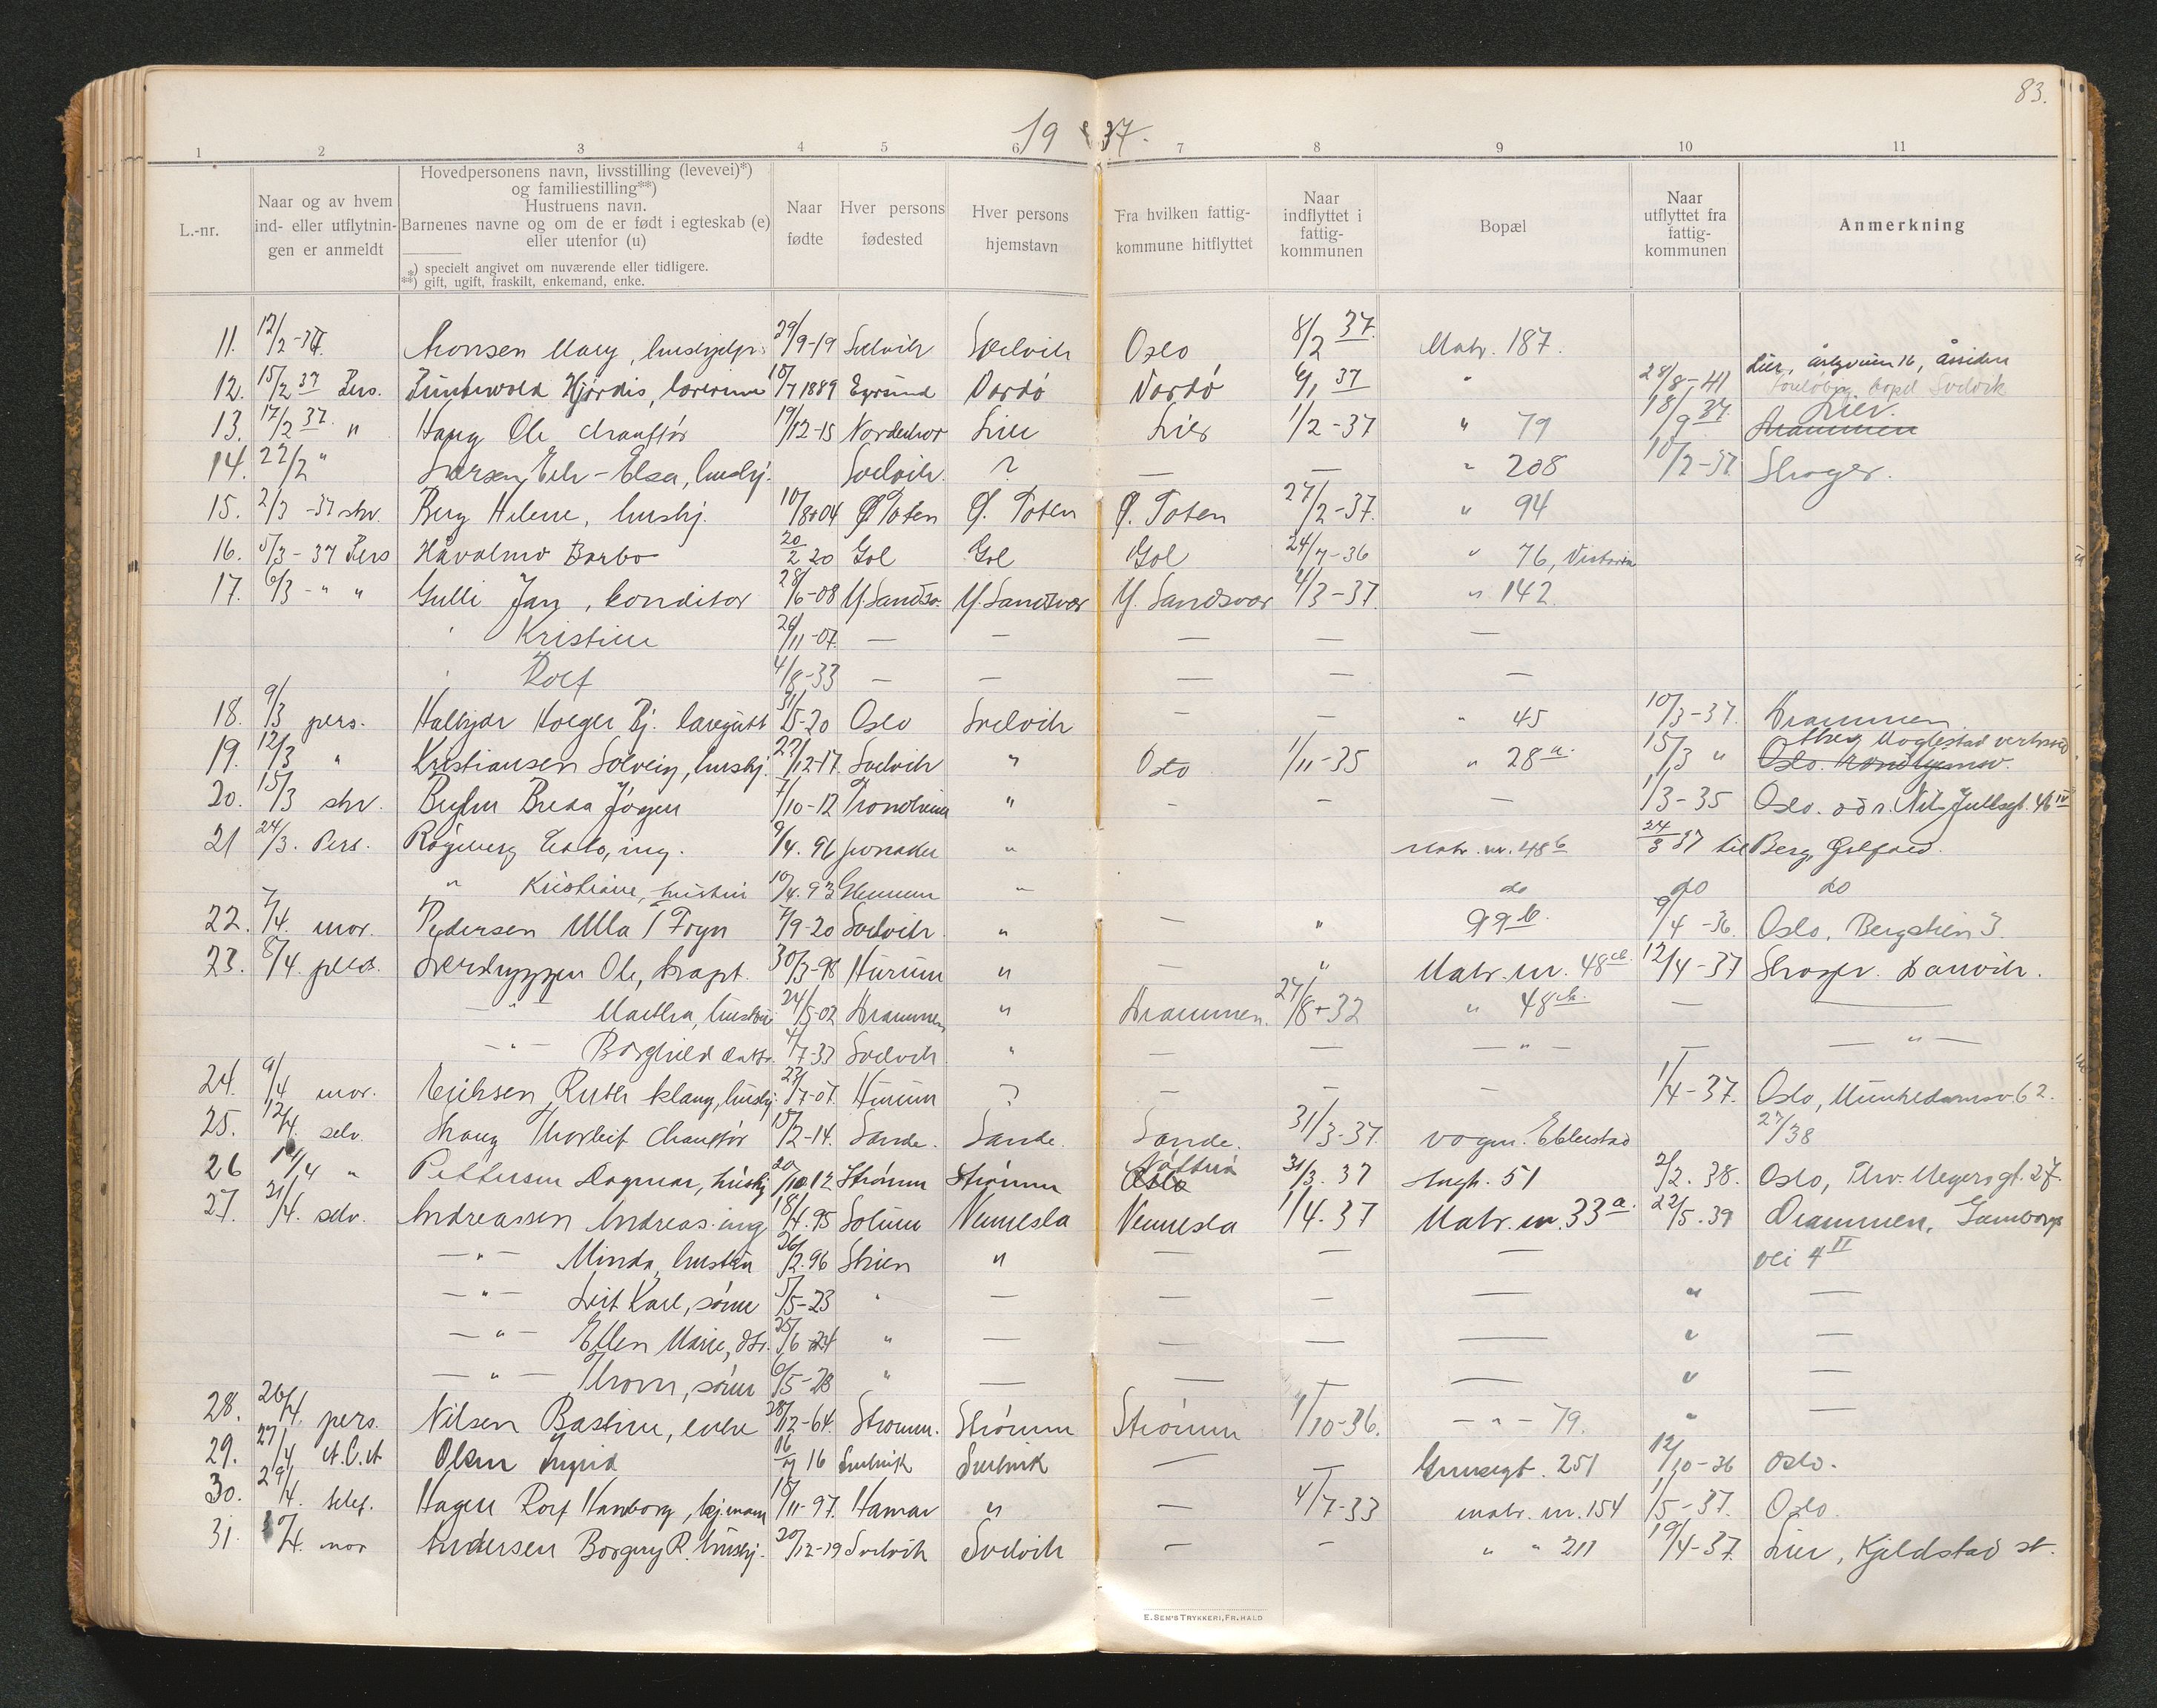 83.
19 37.
1 2 3 4 5 6 7 8 9 10 11
L.-nr.
Naar og av hvem
ind- eller utflytnin-
gen er anmeldt
Hovedpersonens navn, livsstilling (levevei)*)
og familiestilling**)
Hustruens navn.
Barnenes navne og om de er født i egteskab (e)
eller utenfor (u)
*) specielt angivet om nuværende eller tidligere.
**) gift, ugift, fraskilt, enkemand, enke.
Naar
fødte
Hver persons
fødested
Hver persons
hjemstavn
Fra hvilken fattig-
kommune hitflyttet
Naar
indflyttet i
fattig-
kommunen
Bopæl
Naar
utflyttet fra
fattig-
kommunen
Anmerkning
11. 12/2-37. Aronsen Mary, 29/9-19 Svelvik Svelvik Oslo 8/2 37. Matr. 187.
Lier, 16, åssiden
12. 15/2 37 Pers. Hjørdis, lærerinne /7 1889 Egrsund Vardö Vardö 6/1 37 " 28/8-41 Svelvik
13. 17/2 37. " Haug Ole chauffør 19/12-15 Norderhov Lier Lier 1/2-37 " 79 18/9 37 Lier. Drammen
14. 22/2 " Elsa, hushj. Svelvik. ? — — " 208 10/2-37 Skoger.
15. 2/3 -37 skr. Berg Helene, hushj. 10/8-04 Ø. Toten Ø. Toten Ø. Toten 27/2-37. " 94
16. 5/3-37 Pers Håvalmo Barbo 20/2 20 Gol Gol Gol 24/7-36 " 76, Victoria
17. 6/3 - " " Gulli Jan, konditor 28/6-08 Y. Sandsv. Y. Sandsvær Y. Sandsvær 4/3-37. " 142.
" Kristine 26/11-07. — — — —
" Rolf 4/8-33 — — — — —
18. 9/3 pers. Holger Bj. 31/5-20 Oslo Svelvik — — " 45 10/3-37. Drammen.
19. 12/3 " Kristiansen Solveig, hushj. 22/12-17. Svelvik " Oslo 1/11-35 " 28 a. 15/3 " Moglestad
Oslo.
20. 15/3 skr. Breda Jörgen 7/10-12 Trondheim " - - — 1/3-35 Oslo. adr. Nils Juelsgt. 46 IV
21 24/3. Pers. ing. 9/4. 96 " Matr. nr. 48 b 24/3 37 til Berg, Østfold.
" Kristiane, hustru 10/4. 93 " do do do
22. 7/4. mor. Pedersen Ulla T Foyn 7/9-20 Svelvik " — " 99 b. 9/4 -36. Oslo, Bergstien 3.
23. 8/4. Ole, kapt. 30/3-98 Hurum " — " Matr. nr. 48 12/4-37 Danvik.
— " — Martha, hustru 24/5-02 Drammen " Drammen. 27/8-32 " 48 — —
— " — Borghild datter. 4/7-33 Svelvik " — — — " — — — " —
24. 9/4 mor. Eriksen Ruth Klang, hushj. 23/7-07. Hurum ? — — — 1/4-37. Oslo, Munkedamsv. 62.
25. 12/4. selv. Thorleif chauffør 15/2-14. Sande. Sande. Sande. 31/3-37. vogm. Ebbestad 27/38
26 14/4 " Pettersen Dagmar, hushj 20/10 12 Strømm Strømm Nøtterø Oslo 31/3. 37 51 2/2. 38. Oslo, Thv. Meyers gt. 27.
27. 21/4. selv. Andreassen Andreas ing 18/4. 95 Solum Vennesla Vennesla 1/4. 37 Matr. nr. 33 a. 22/5. 39 Drammen,
— " — Minda, hustru 26/2. 96 Skien " — — — vei 4 II
— " — Leif Karl, sønn 5/5-23 " — — — — " —
— " — Ellen Marie, dtr. 25/6-24 " — — — — " —
— " — Thom, sønn 6/5-28 " — — — — " —
28. 26/4. pers. Nilsen Bastine, enke 28/12-64. Strømm. Strømm Strømm 1/10-36. — " — 79. " —
29. 27/4 Olsen Ingrid 16/7 16 Svelvik Svelvik — — 251 12/10-36 Oslo.
30. 29/4. telef. Hagen Rolf Hamborg, 15/11-97. Hamar " — 4/7-33 matr. nr. 154 1/5-37. Oslo.
31. /4. mor Andersen Borgny R. hushj. 20/12-19 Svelvik Svelvik — - " " 211 19/4-37. Lier, Kjeldstad st.
E. SEM'S TRYKKERI, FR.HALD